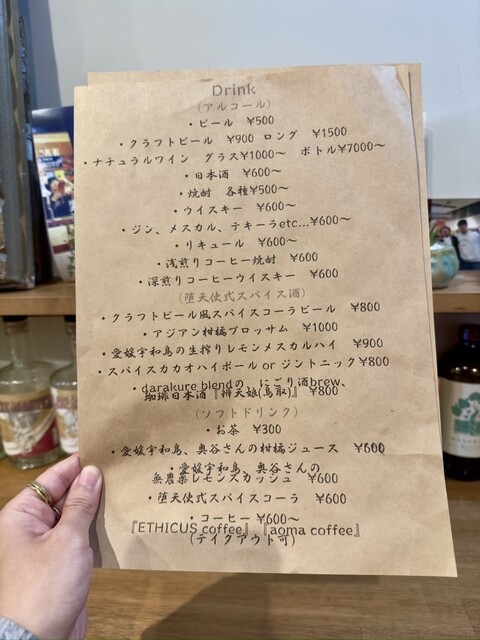 Drink
(アルコール)
・ビール ¥500
・クラフトビール ¥900 ロング ¥1500
・ナチュラルワイン グラス¥1000〜 ボトル¥7000〜
・日本酒 ¥600〜
・焼酎 各種¥500〜
・ウイスキー ¥600〜
・ジン、メスカル、テキーラetc...¥600〜
・リキュール ¥600〜
・浅煎りコーヒー焼酎 ¥600
・深煎りコーヒーウイスキー ¥600
(堕天使式スパイス酒)
・クラフトビール風スパイスコーラビール ¥800
・アジアン柑橘ブロッサム ¥1000
・愛媛宇和島の生搾りレモンメスカルハイ ¥900
・スパイスカカオハイボール or ジントニック¥800
・darakure blendの、にごり酒brew、
珈琲日本酒『辨天娘(鳥取)』 ¥800
(ソフトドリンク)
・お茶 ¥300
・愛媛宇和島、奥谷さんの柑橘ジュース ¥600
・愛媛宇和島、奥谷さんの
無農薬レモンスカッシュ ¥600
・堕天使式スパイスコーラ ¥600
・コーヒー ¥600〜
『ETHICUS coffee』『aoma coffee』
(テイクアウト可)